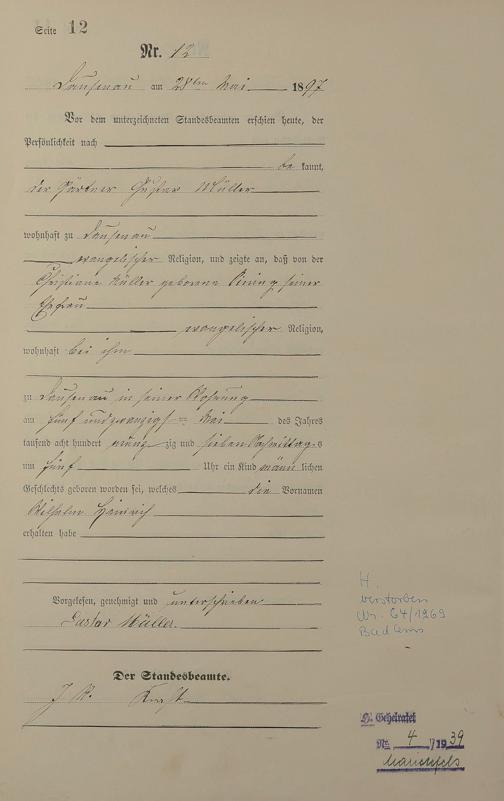 Seite 12
Nr. 12
Dausenau am 28ten Mai 1897
Vor dem unterzeichneten Standesbeamten erschien heute, der
Persönlichkeit nach
be kannt,
der Gärtner Gustav Müller
wohnhaft zu Dausenau
evangelischer Religion, und zeigte an, daß von der
Christiane Müller geborenen seiner
Ehefrau
evangelischer Religion,
wohnhaft bei ihm
zu Dausenau in seiner Wohnung
am fünf und zwanzigsten Mai des Jahres
tausend acht hundert neunzig und sieben Nachmittags
um fünf Uhr ein Kind männlichen
Geschlechts geboren worden sei, welches die Vornamen
Wilhelm Heinrich
erhalten habe
Vorgelesen, genehmigt und unterschrieben
Gustav Müller.
Der Standesbeamte.
J. V.
H.
verstorben
Nr. 64/1969
Bad Ems
H. Geheiratet
Nr. 4 / 1939
Marienfels